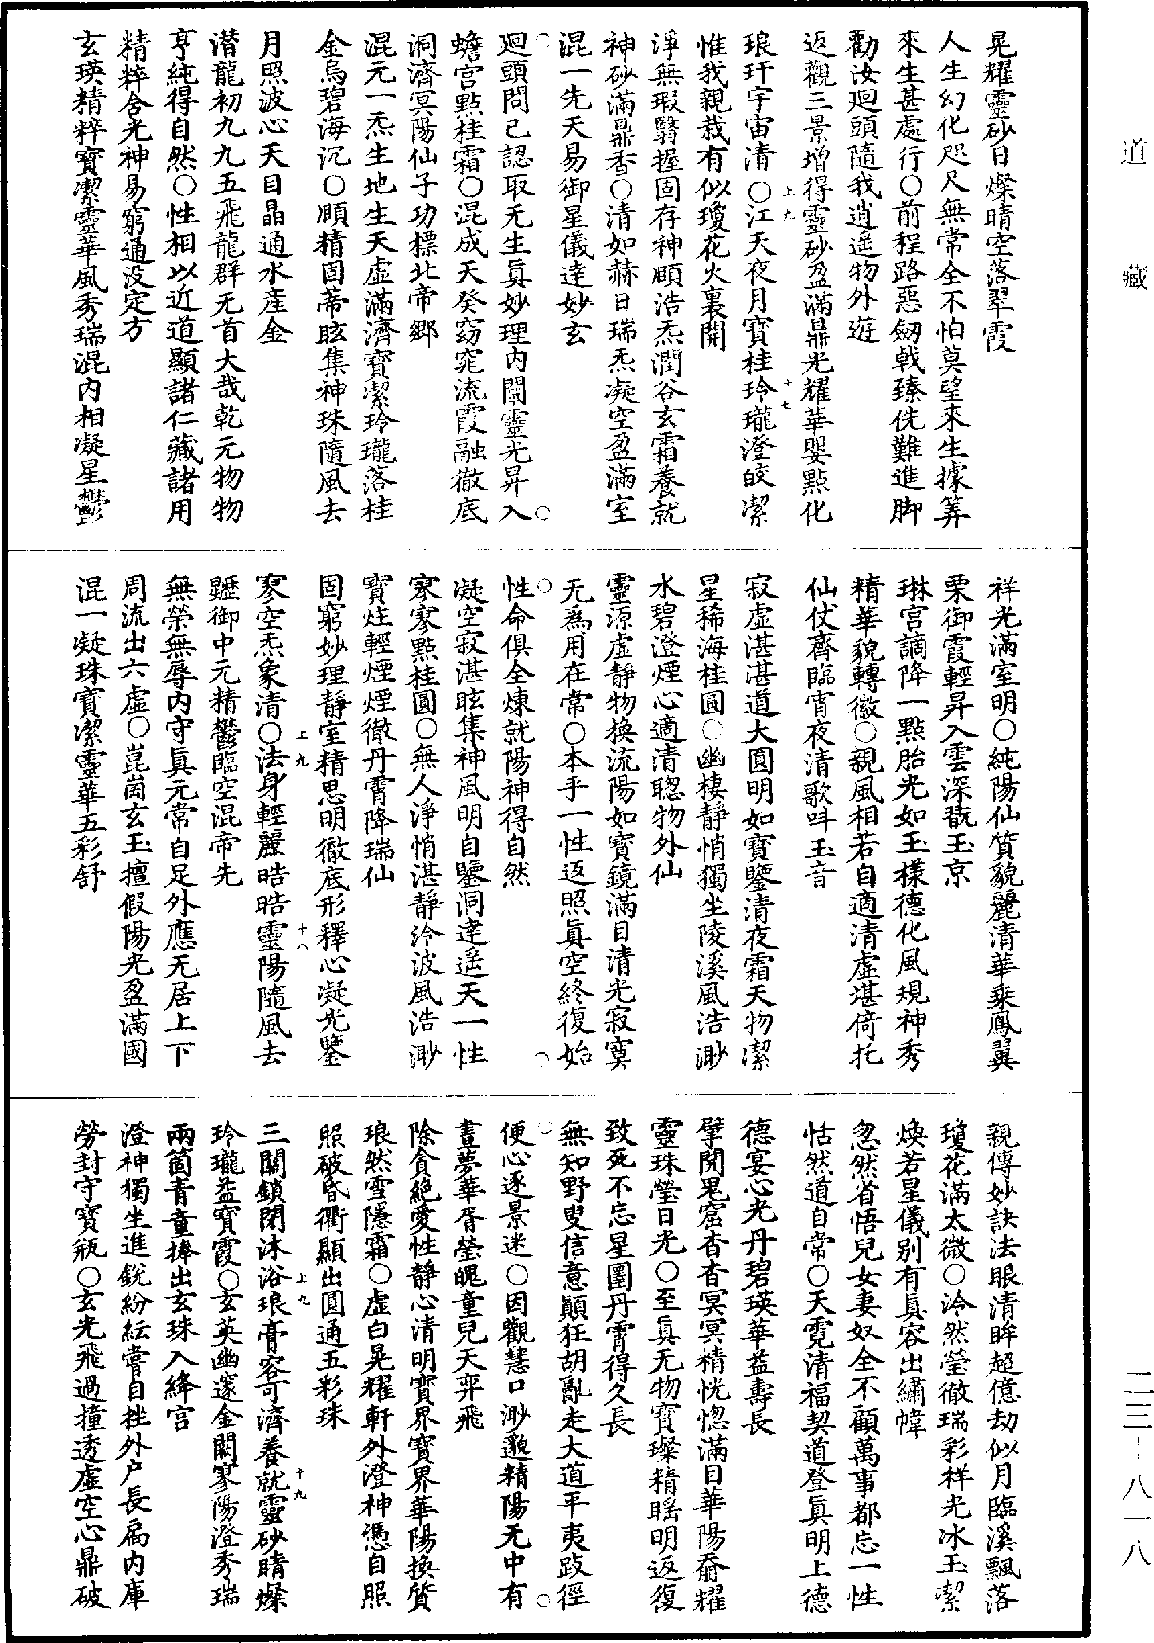 道藏
二三—八一八
晃耀靈砂日燦晴空落翠霞
人生幻化咫尺無常全不怕莫望來生據筭
來生甚處行○前程路惡劒戟臻侁難進脚
勸汝廻頭隨我逍遙物外遊
返觀三景增得靈砂盈滿鼎光耀華嬰點化
琅玕宇宙清○江天夜月寶桂玲瓏澄皎潔
惟我親栽有似瓊花火裏開
淨無瑕翳握固存神頤浩炁潤谷玄霜養就
神砂滿鼎香○清如赫日瑞炁凝空盈滿室
混一先天易御星儀達妙玄
廻頭問己認取无生眞妙理內闡靈光昇入
蟾宮點桂霜○混成天癸窈窕流霞融徹底
洞濟冥陽仙子功標北帝鄉
混元一炁生地生天虛滿濟寶潔玲瓏落桂
金烏碧海沉○頤精固蒂眩集神珠隨風去
月照波心天目晶通水產金
潛龍初九九五飛龍群无首大哉乾元物物
亨純得自然○性相以近道顯諸仁藏諸用
精粹含光神易窮通没定方
玄瑛精粹寶潔靈華風秀瑞混内相凝星鬱
上九
十七
祥光滿室明○純陽仙質貌麗清華乘鳳翼
栗御霞輕昇入雲深翫玉京
琳宮謫降一點胎光如玉樣德化風規神秀
精華貌轉徽○親風相若自適清虛堪倚托
仙仗齊臨宵夜清歌呌玉音
寂虛湛湛道大圓明如寶鑒清夜霜天物潔
星稀海桂圓○幽棲靜悄獨坐陵溪風浩渺
水碧澄煙心適清聰物外仙
靈源虛靜物換流陽如寶鏡滿目清光寂寞
无爲用在常○本乎一性返照眞空終復始
性命俱全煉就陽神得自然
凝空寂湛眩集神風明自鑒洞達遥天一性
寥寥點桂圓○無人淨悄湛靜泠波風浩渺
寶炷輕煙煙徹丹霄降瑞仙
固窮妙理靜室精思明徹底形釋心凝光鑒
寥空炁象清○法身輕麗晧晧靈陽隨風去
躡御中元精鬱臨空混帝先
無榮無辱内守眞元常自足外應无居上下
周流出六虛○崑崗玄玉擅假陽光盈滿國
混一凝珠寶潔靈華五彩舒
上九
十八
親傳妙訣法眼清眸超億劫似月臨溪飄落
瓊花滿太微○泠然瑩徹瑞彩祥光冰玉潔
煥若星儀别有眞容出繡幃
忽然省悟兒女妻奴全不顧萬事都忘一性
怙然道自常○天霓清福契道登眞明上德
德宴心光丹碧瑛華益壽長
擘開鬼窟杳杳冥冥精恍惚滿目華陽奮耀
靈珠瑩日光○至眞无物寶璨精瞳明返復
致死不忘星圍丹霄得久長
無知野叟信意顛狂胡亂走大道平夷跂徑
便心逐景迷○因觀慧口渺邈精陽无中有
晝夢華胥瑩魄童兒天弈飛
除貪絕愛性靜心清明寶界寶界華陽換質
琅然雪隱霜○虛白晃耀軒外澄神憑自照
照破昏衢顯出圓通五彩珠
三關鎖閉沐浴琅膏容可濟養就靈砂晴燦
玲瓏益寶霞○玄英幽邃金闕寥陽澄秀瑞
兩箇青童捧出玄珠入絳宮
澄神獨坐進銳紛紜嘗自挫外户長扃内庫
勞封守寶瓶○玄光飛過撞透虛空心鼎破
上九
十九